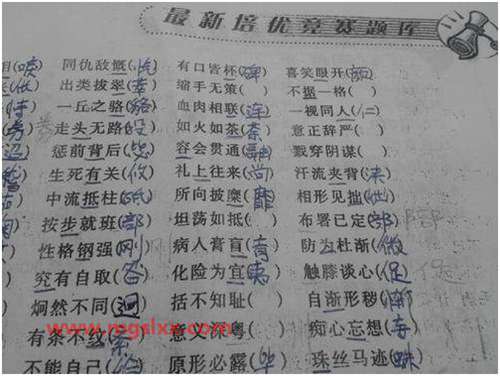 最新培优竞赛题库
(喷) 同仇敌慨(忾) 有口皆杯(碑) 喜笑眼开(颜)
出类拔翠(萃) 缩手无策( ) 不摄一格( )
(恃) 一丘之骆(貉) 血肉相联(连) 一视同人(仁)
走头无路(投) 如火如茶(荼) 意正辞严( )
惩前背后(毖) 容会贯通(融) 戳穿阴谋( )
生死有关(攸) 礼上往来(尚) 汗流夹背(浃)
中流抵柱(砥) 所向披糜(靡) 相形见拙(绌)
按步就班(部) 坦荡如抵( ) 布署已定(部
性格钢强(刚) 病人膏盲(肓) 防为杜渐(微)
究有自取(咎) 化险为宜(夷) 触膝谈心(促)
炯然不同(迥) 括不知耻( ) 自渐形秽(
有条不 意义深粤( ) 痴心忘想(
www.mgslxx.com
不能自己( 原形必露(毕) 珠丝马迹(蛛